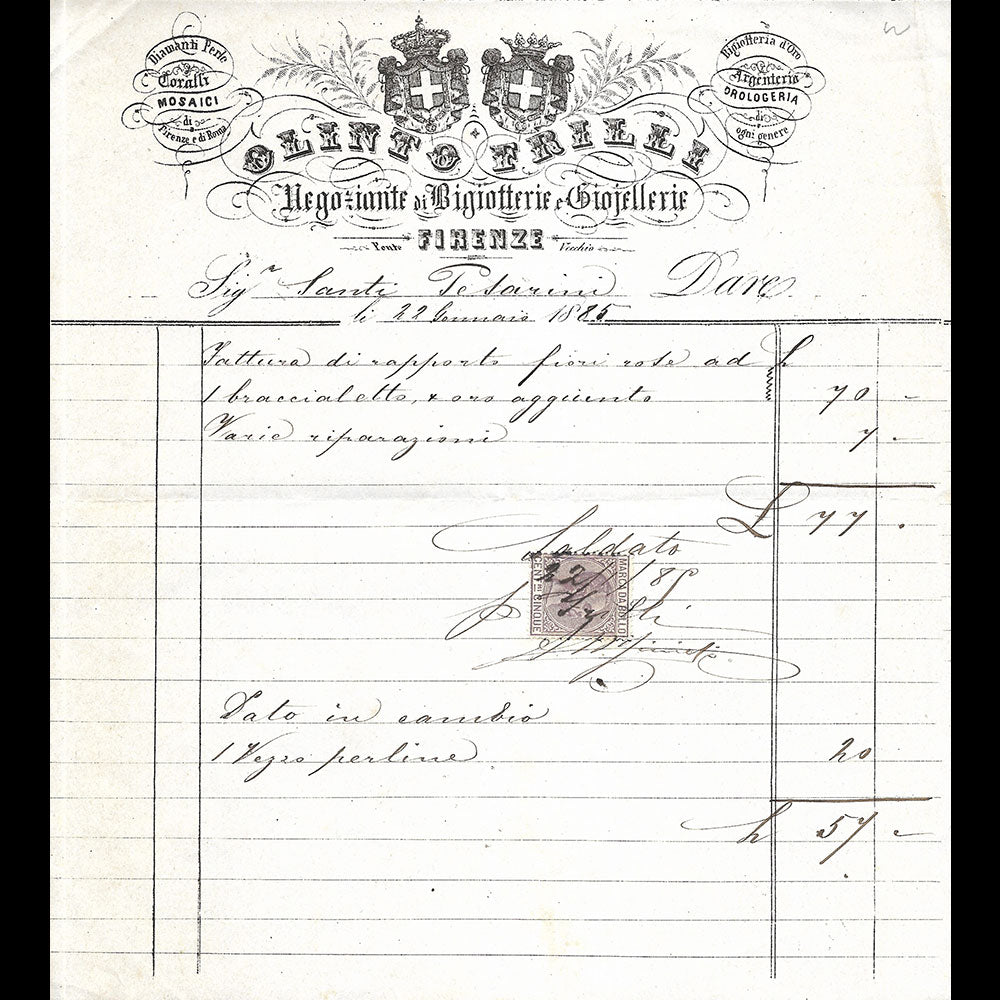 Diamanti Perle
Coralli
MOSAICI
di
Firenze e di Roma
Bigiotteria d'Oro
Argenteria
OROLOGERIA
di
ogni genere
OLINTO FRILLI
Negoziante di Bigiotterie e Giojellerie
Ponte FIRENZE Vecchio
Sigr Santi Pesarini Dare
li 22 Gennaio 1885
Fattura di rapporto fiori rose ad £
1 braccialetto, e oro aggiunto 70 -
Varie riparazioni 7 -
£ 77 .
Saldato
CENTmi CINQUE
MARCA DA BOLLO
22/1/85
Dato in cambio
1 Vezzo perline 20
£ 57 -